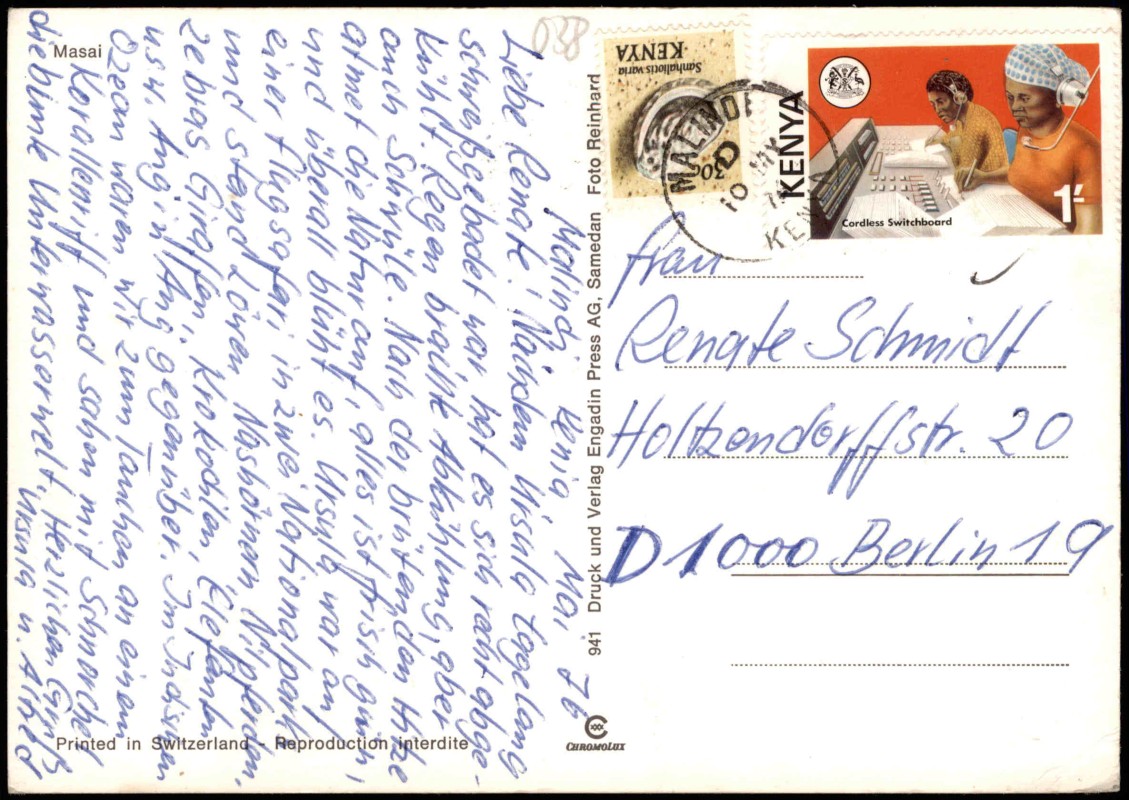 Masai
038
Malindi, Kenia, Mai 76
Liebe Renate, Nachdem Ursula tagelang
schweißgebadet war, hat es sich recht abge-
kühlt. Regen brachte Abkühlung, aber
auch Schwüle. Nach der brütenden Hitze
atmet die Natur auf, alles ist frisch grün,
und überall blüht es. Ursula war auf
einer Flugsafari in zwei Nationalparks
und stand Löwen, Nashörnern, Nilpferden,
Zebras, Giraffen, Krokodilen, Elefanten
usw. Aug in Aug gegenüber. Im Indischen
Ozean waren wir zum Tauchen an einem
Korallenriff und sahen mit Schnorchel
die bunte Unterwasserwelt. Herzlichen Gruß
Ursula u.
Printed in Switzerland - Reproduction interdite
941 Druck und Verlag Engadin Press AG, Samedan Foto Reinhard
CHROMOLUX
Sanhaliotis varia
KENYA
30c
MALINDI
10
KENYA
KENYA
Cordless Switchboard
1/-
Frau
Renate Schmidt
Holtzendorffstr. 20
D 1000 Berlin 19